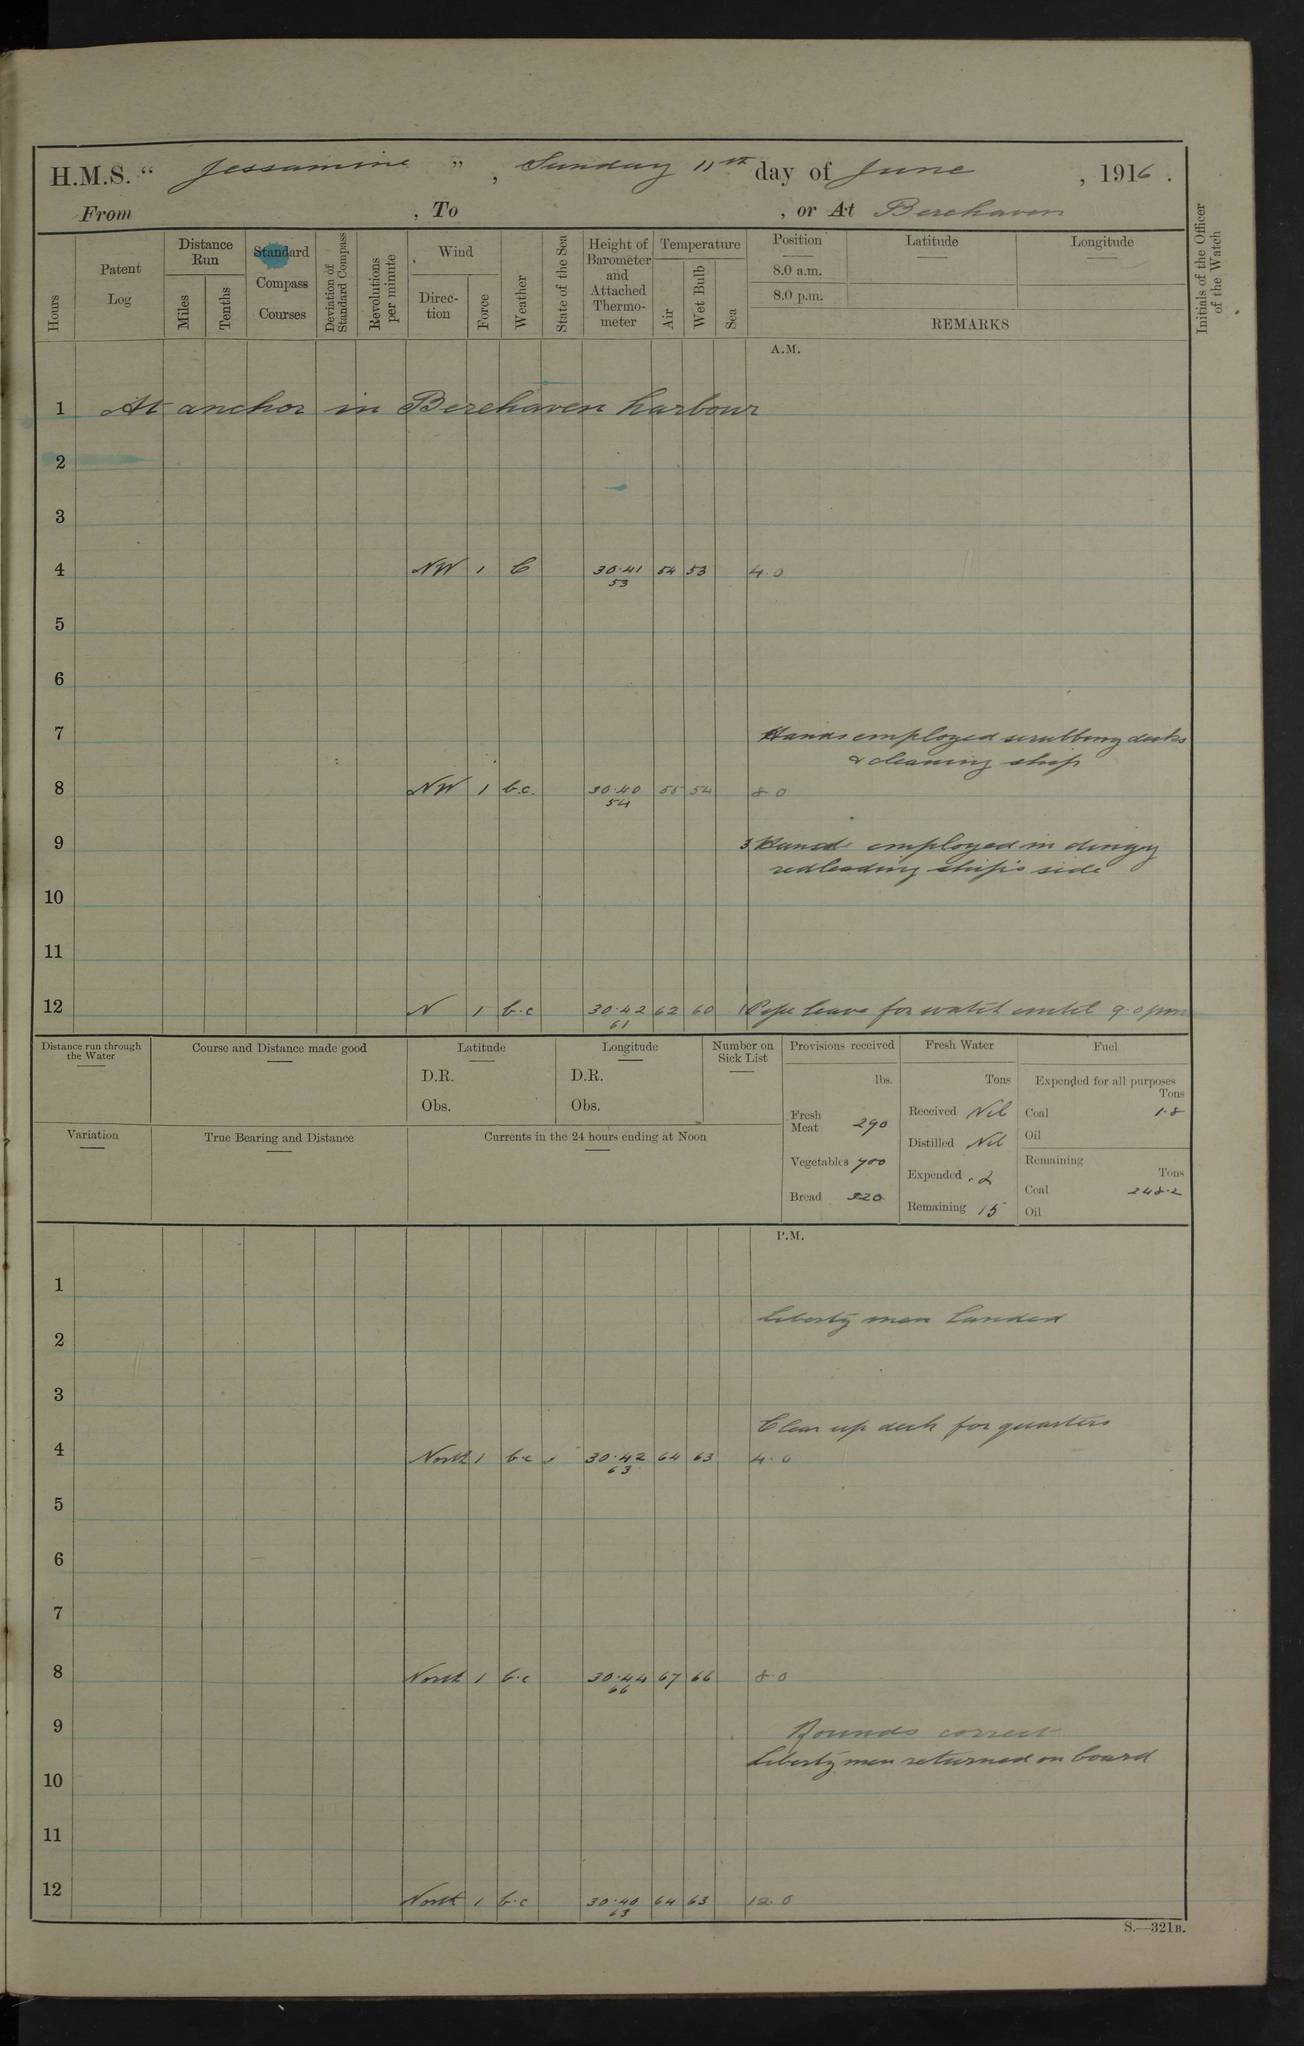 H.M.S. “ Jessamine ” , Sunday 11th day of June , 1916 .
From , To , or At Berehaven
Hours
Patent Log
Distance Run
Miles
Tenths
Standard Compass Courses
Deviation of Standard Compass
Revolutions per minute
Wind
Direc-tion
Force
Weather
State of the Sea
Height of Barometer and Attached Thermo-meter
Temperature
Air
Wet Bulb
Sea
Position
8.0 a.m.
8.0 p.m.
Latitude
Longitude
REMARKS
Initials of the Officer of the Watch
A.M.
1 At anchor in Berehaven harbour
2
3
4 NW 1 C 30.41 54 53 4.0
53
5
6
7 Hands employed scrubbing decks
& cleaning ship
8 NW 1 b.c. 30.40 55 54 8.0
54
9 3 Hands employed in dingy
redleading ship's side
10
11
12 N 1 b.c 30.42 62 60 leave for watch until 9.0 pm
61
Distance run through the Water
Course and Distance made good
Latitude
D.R.
Obs.
Longitude
D.R.
Obs.
Number on Sick List
Provisions received
lbs.
Fresh Meat 290
Vegetables 400
Bread 320
Fresh Water
Tons
Received Nil
Distilled Nil
Expended .2
Remaining 15
Fuel
Expended for all purposes
Tons
Coal 1.8
Oil
Remaining
Tons
Coal 248.2
Oil
Variation
True Bearing and Distance
Currents in the 24 hours ending at Noon
P.M.
1
liberty men landed
2
3
Clear up deck for quarters
4 North 1 b.c 30.42 64 63 4.0
63
5
6
7
8 North 1 b.c 30.44 67 66 8.0
66
9 Rounds correct
liberty men returned on board
10
11
12 North 1 b.c 30.40 64 63 12.0
63
S.—321B.